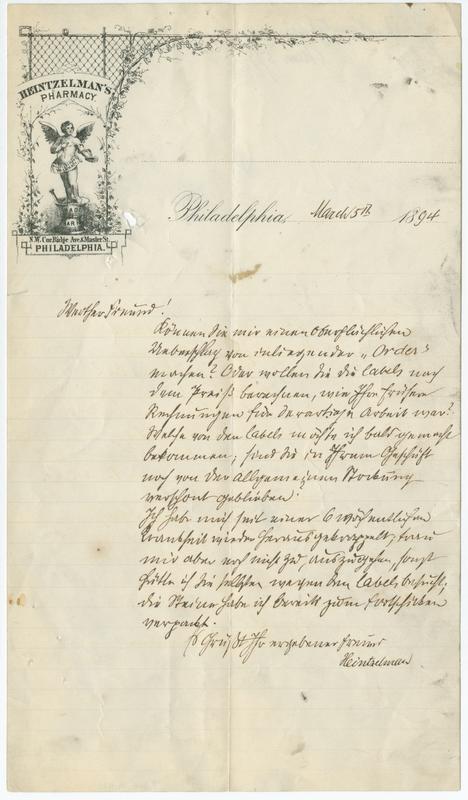 HEINTZELMAN'S
PHARMACY
N.W. Cor. Ridge Ave. & Master St.
PHILADELPHIA.
Philadelphia, March 5th 1894
Werther Freund!
Können Sie mir einen oberflächlichen
Ueberschlag von inliegender „Order“
machen? Oder wollen Sie die Labels nach
dem Preiß berechnen, wie Ihre frühere
Rechnungen für derartige Arbeit war?
Welche von den Labels möchte ich bald gemacht
bekommen; sind Sie in Ihrem Geschäft
noch von der allgemeinen Stockung
verschont geblieben?
Ich habe mich seit einer 6 wöchentlichen
Krankheit wieder herausgekrappelt, trau
mir aber noch nicht zu, auszugehen, sonst
hätte ich Sie selbst wegen den Label besucht;
die Steine habe ich bereits zum fortschicken
verpackt.
Gruß Ihr ergebener Freund
Heintzelman